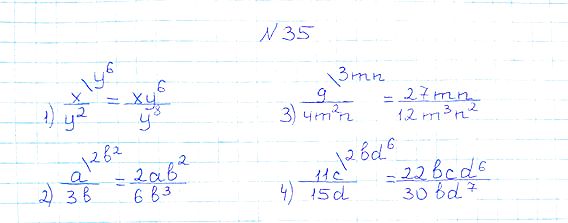 N 35
1) x/y² \y⁶ = xy⁶/y⁸
2) a/3b \2b² = 2ab²/6b³
3) 9/4m²n \3mn = 27mn/12m³n²
4) 11c/15d \2bd⁶ = 22bcd⁶/30bd⁷